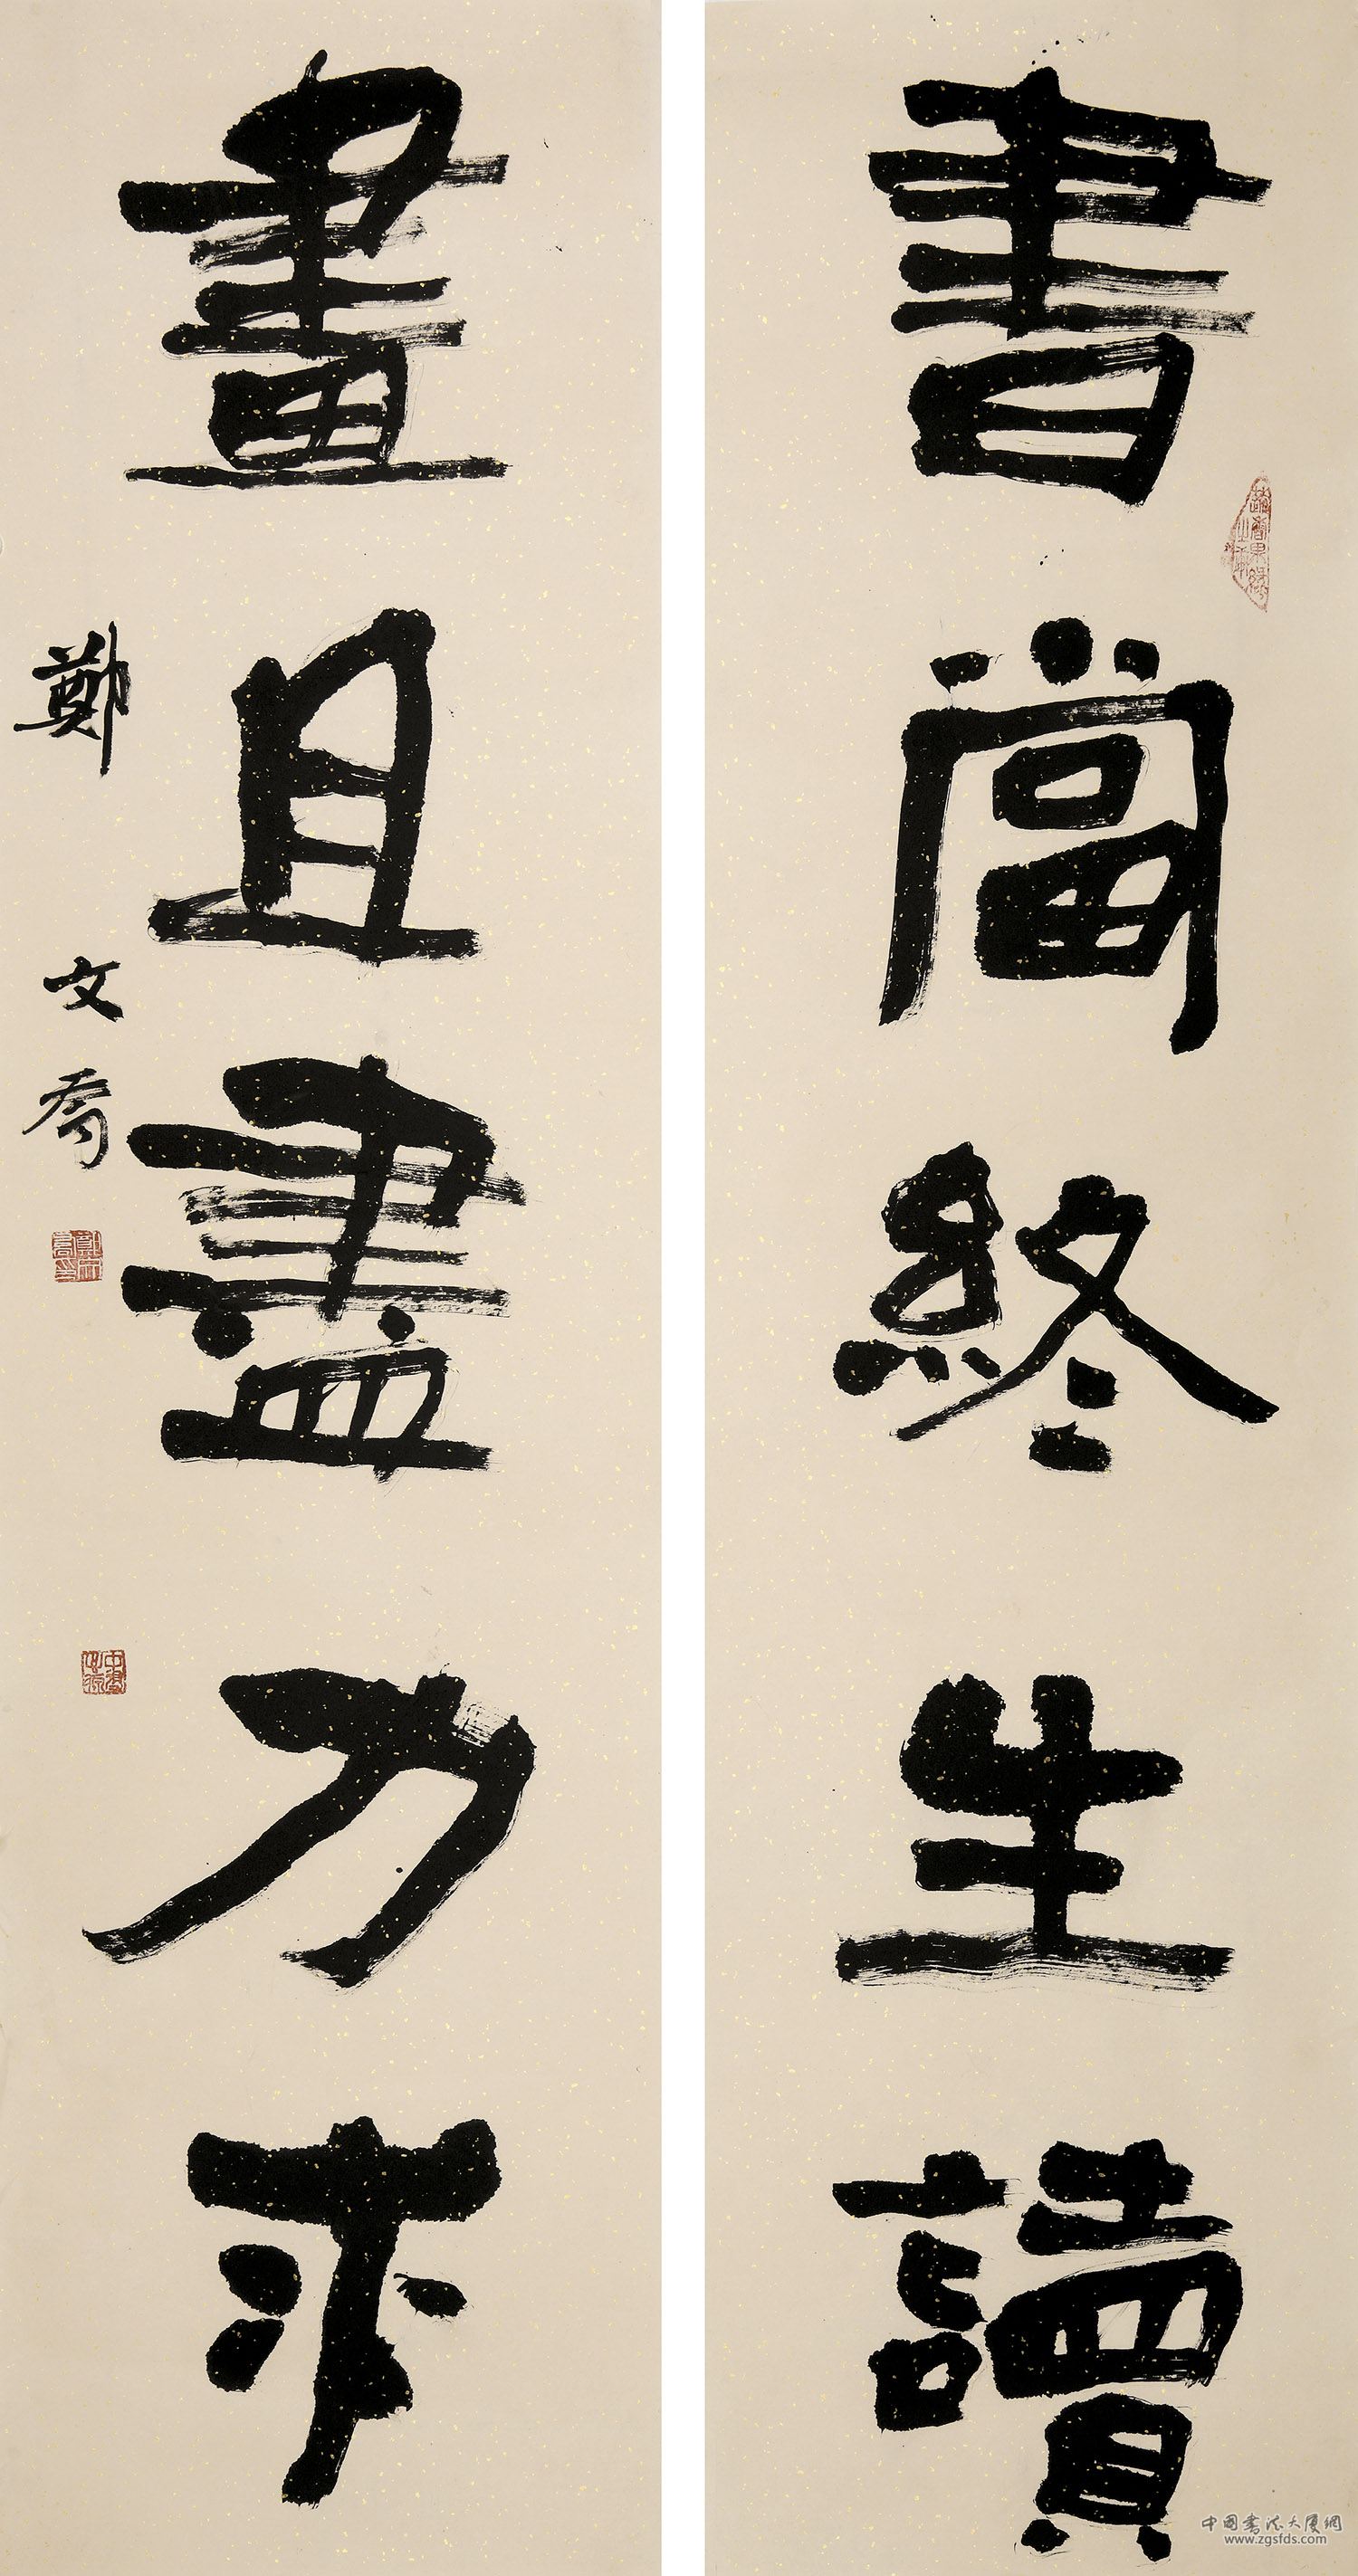 書當終生讀
畫且盡力求
鄭文喬
中国書法大厦網
www.zgsfds.com